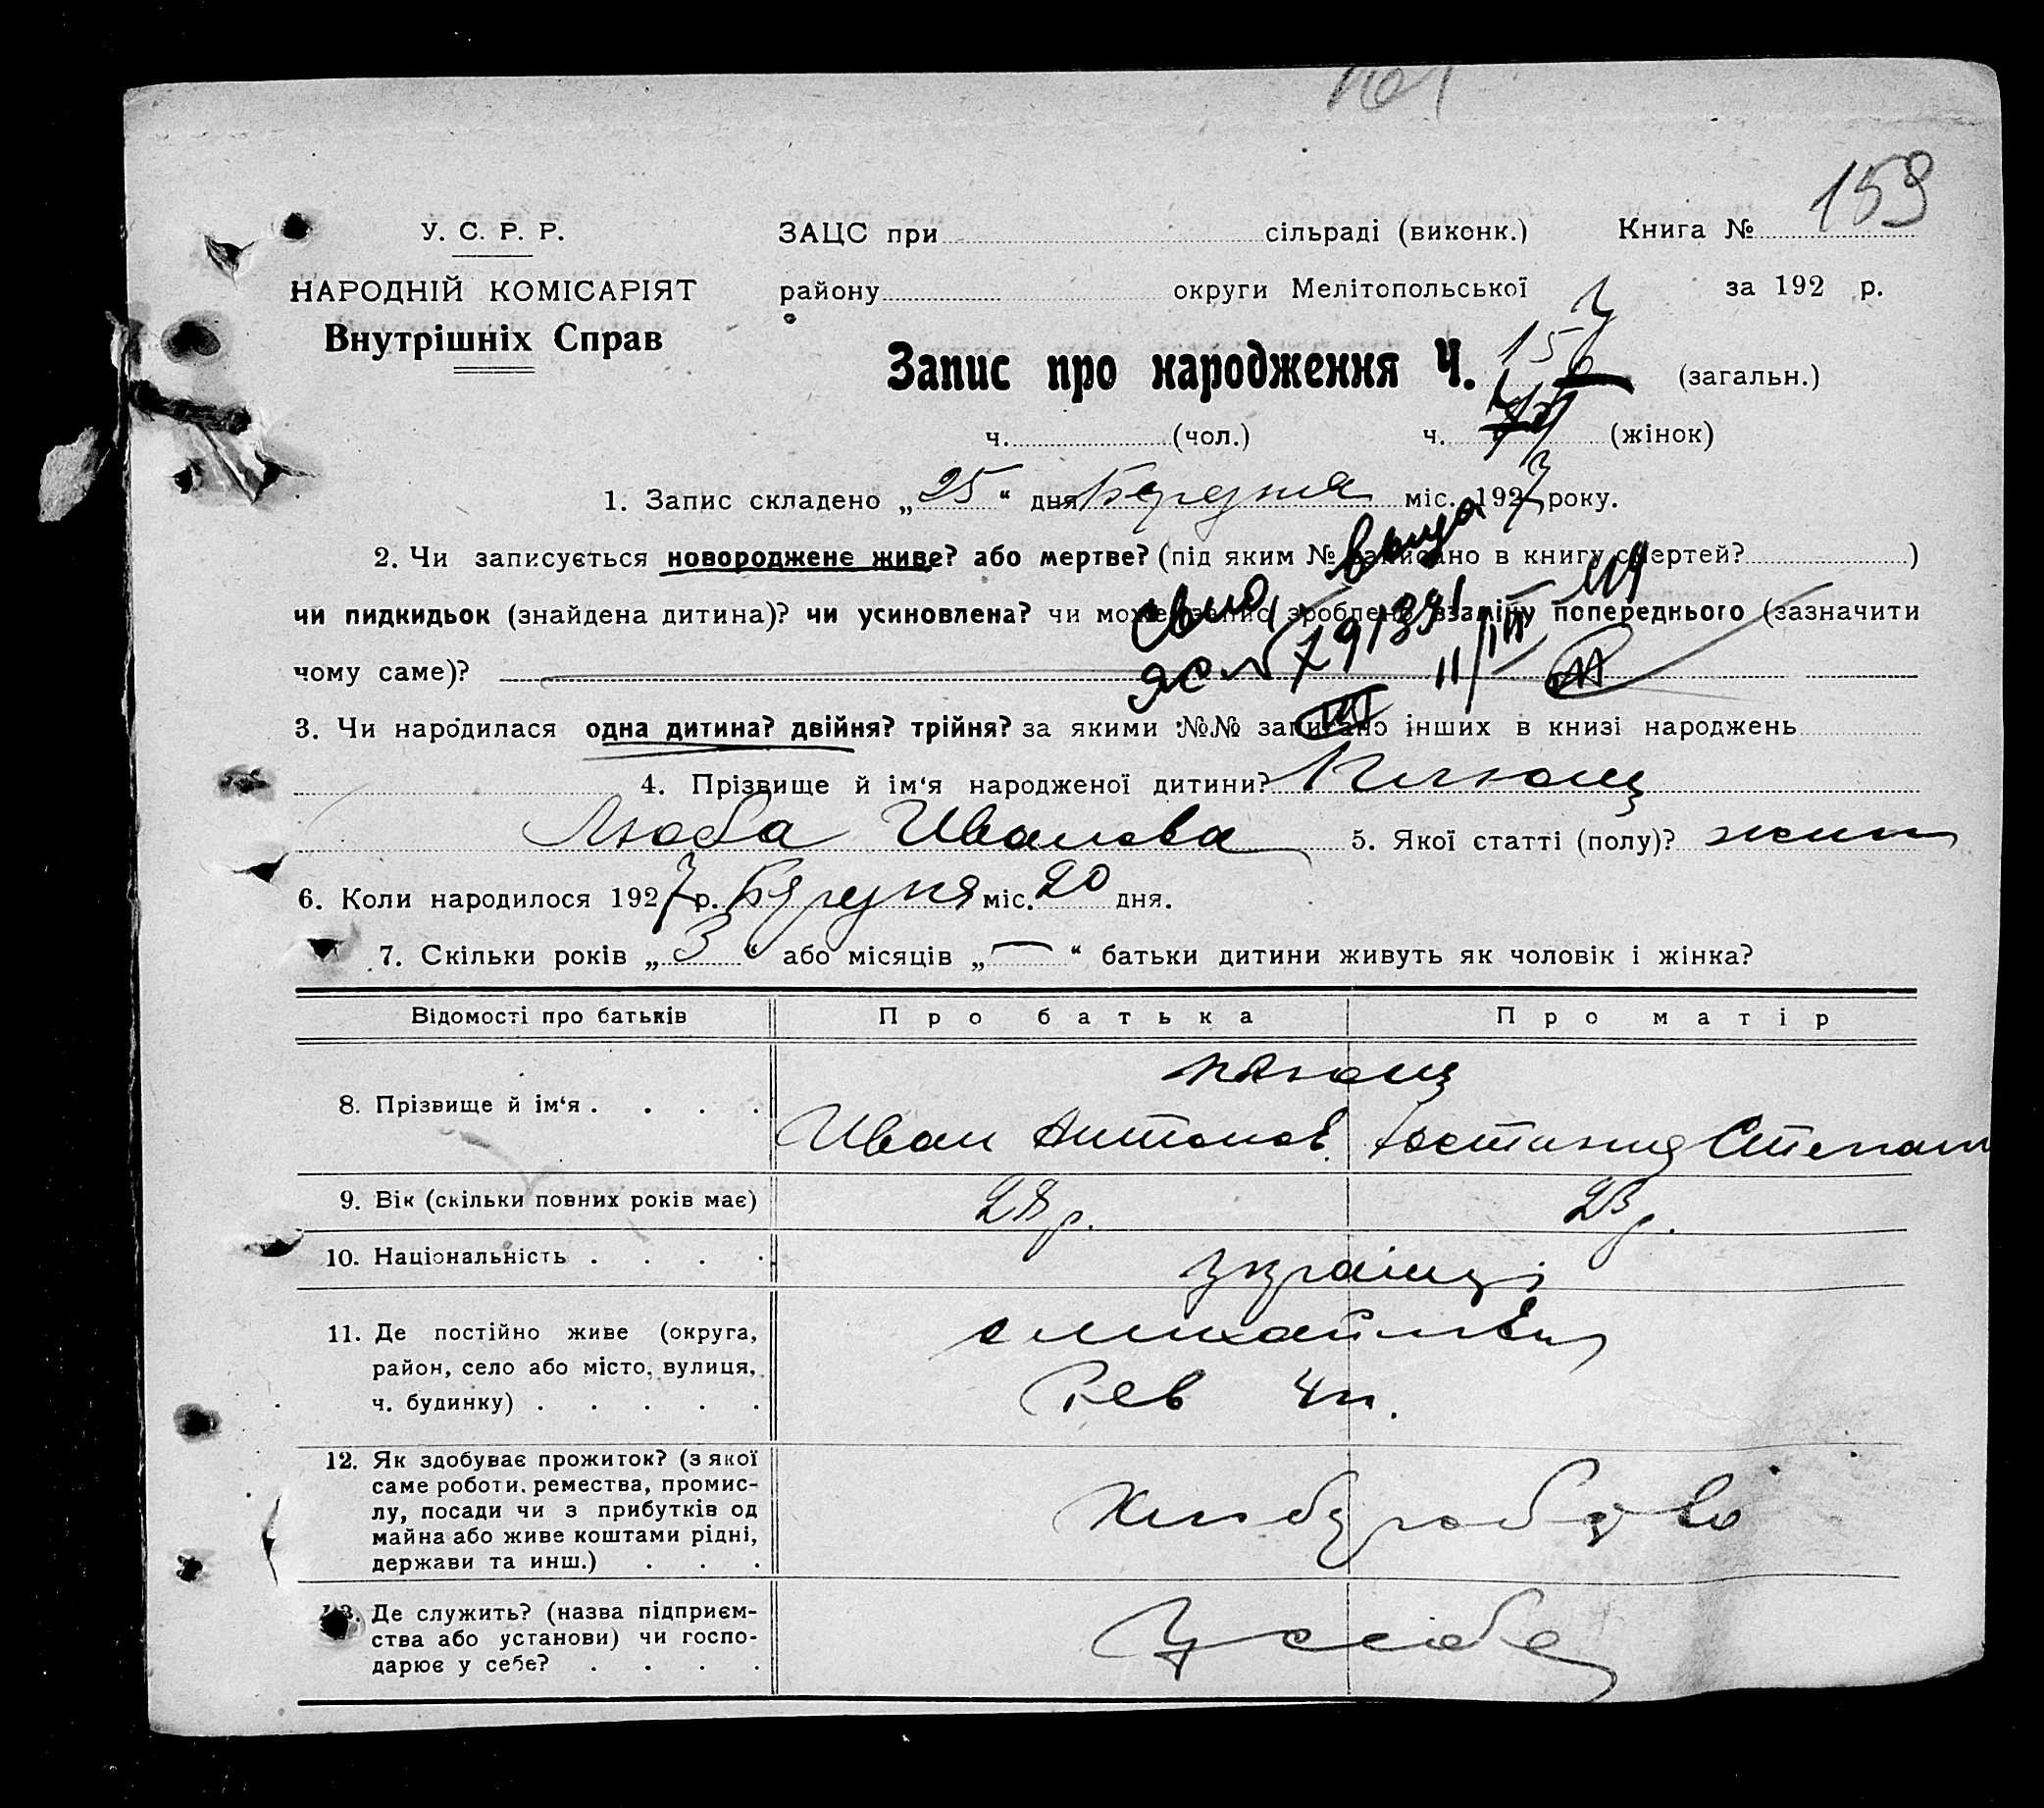 159
У. С. Р. Р.
НАРОДНІЙ КОМІСАРІЯТ
Внутрішніх Справ
ЗАЦС при сільраді (виконк.) Книга №
району округи Мелітопольської за 192 р.
7
Запис про народження Ч. 156 (загальн.)
ч. (чол.) ч. (жінок)
1. Запис складено „25“ дня Березня міс. 1927 року.
2. Чи записується новороджене живе? або мертве? (під яким № записано в книгу смертей? )
чи пидкидьок (знайдена дитина)? чи усиновлена? чи може запис зроблено взаміну попереднього (зазначити
чому саме)?
3. Чи народилася одна дитина? двійня? трійня? за якими №№ записано інших в книзі народжень
4. Прізвище й ім‘я народженої дитини? Плющ
Люба Иванова 5. Якої статті (полу)? жин
6. Коли народилося 1927 р. Березня міс. 20 дня.
7. Скільки років „3“ або місяців „—“ батьки дитини живуть як чоловік і жінка?
Відомості про батьків Про батька Про матір
8. Прізвище й ім‘я . . . . Плющ
Иван Антонов. Юстиния Степан
9. Вік (скільки повних років має) 28 р. 23 р.
10. Національність . . . . українці
11. Де постійно живе (округа,
район, село або місто, вулиця,
ч. будинку) . . . . .
с Михайлівка
Рев 4п.
12. Як здобуває прожиток? (з якої
саме роботи, ремества, промис-
лу, посади чи з прибутків од
майна або живе коштами рідні,
держави та инш.) . . .
Хлібуробство
13. Де служить? (назва підприєм-
ства або установи) чи госпо-
дарює у себе? . . . .
У себе